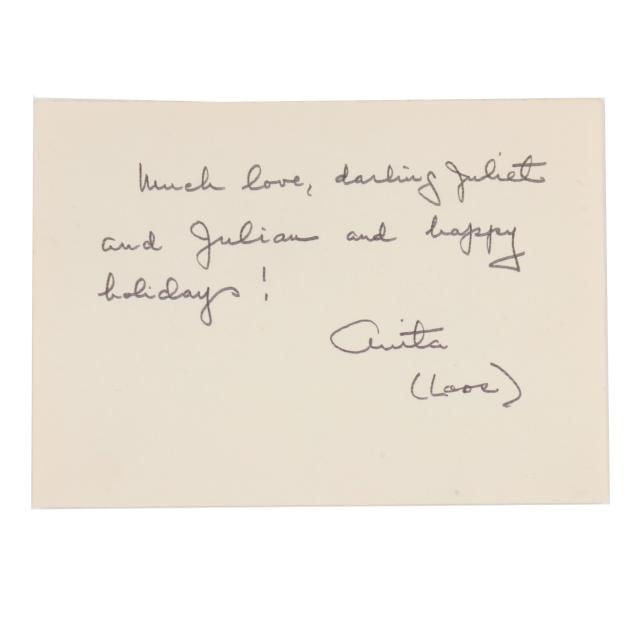 Much love, darling Juliet
and Julian and happy
holidays!
Anita
(Loos)